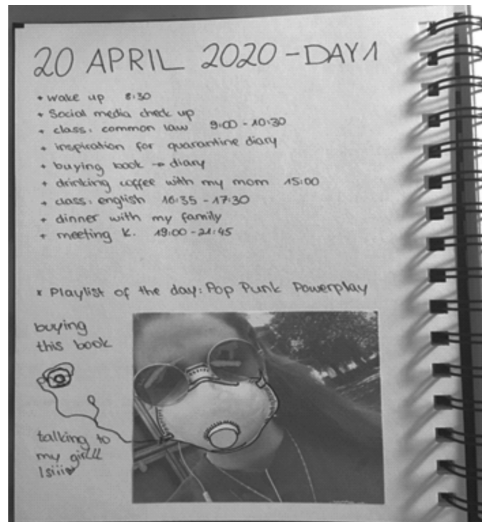 20 APRIL 2020 - DAY 1
+ wake up 8:30
+ Social media check up
+ class: common law 9:00 - 10:30
+ inspiration for quarantine diary
+ buying book → diary
+ drinking coffee with my mom 15:00
+ class: english 16:35 - 17:30
+ dinner with my family
+ meeting K. 19:00 - 21:45
* Playlist of the day: Pop Punk Powerplay
buying
this book
talking to
my girlll